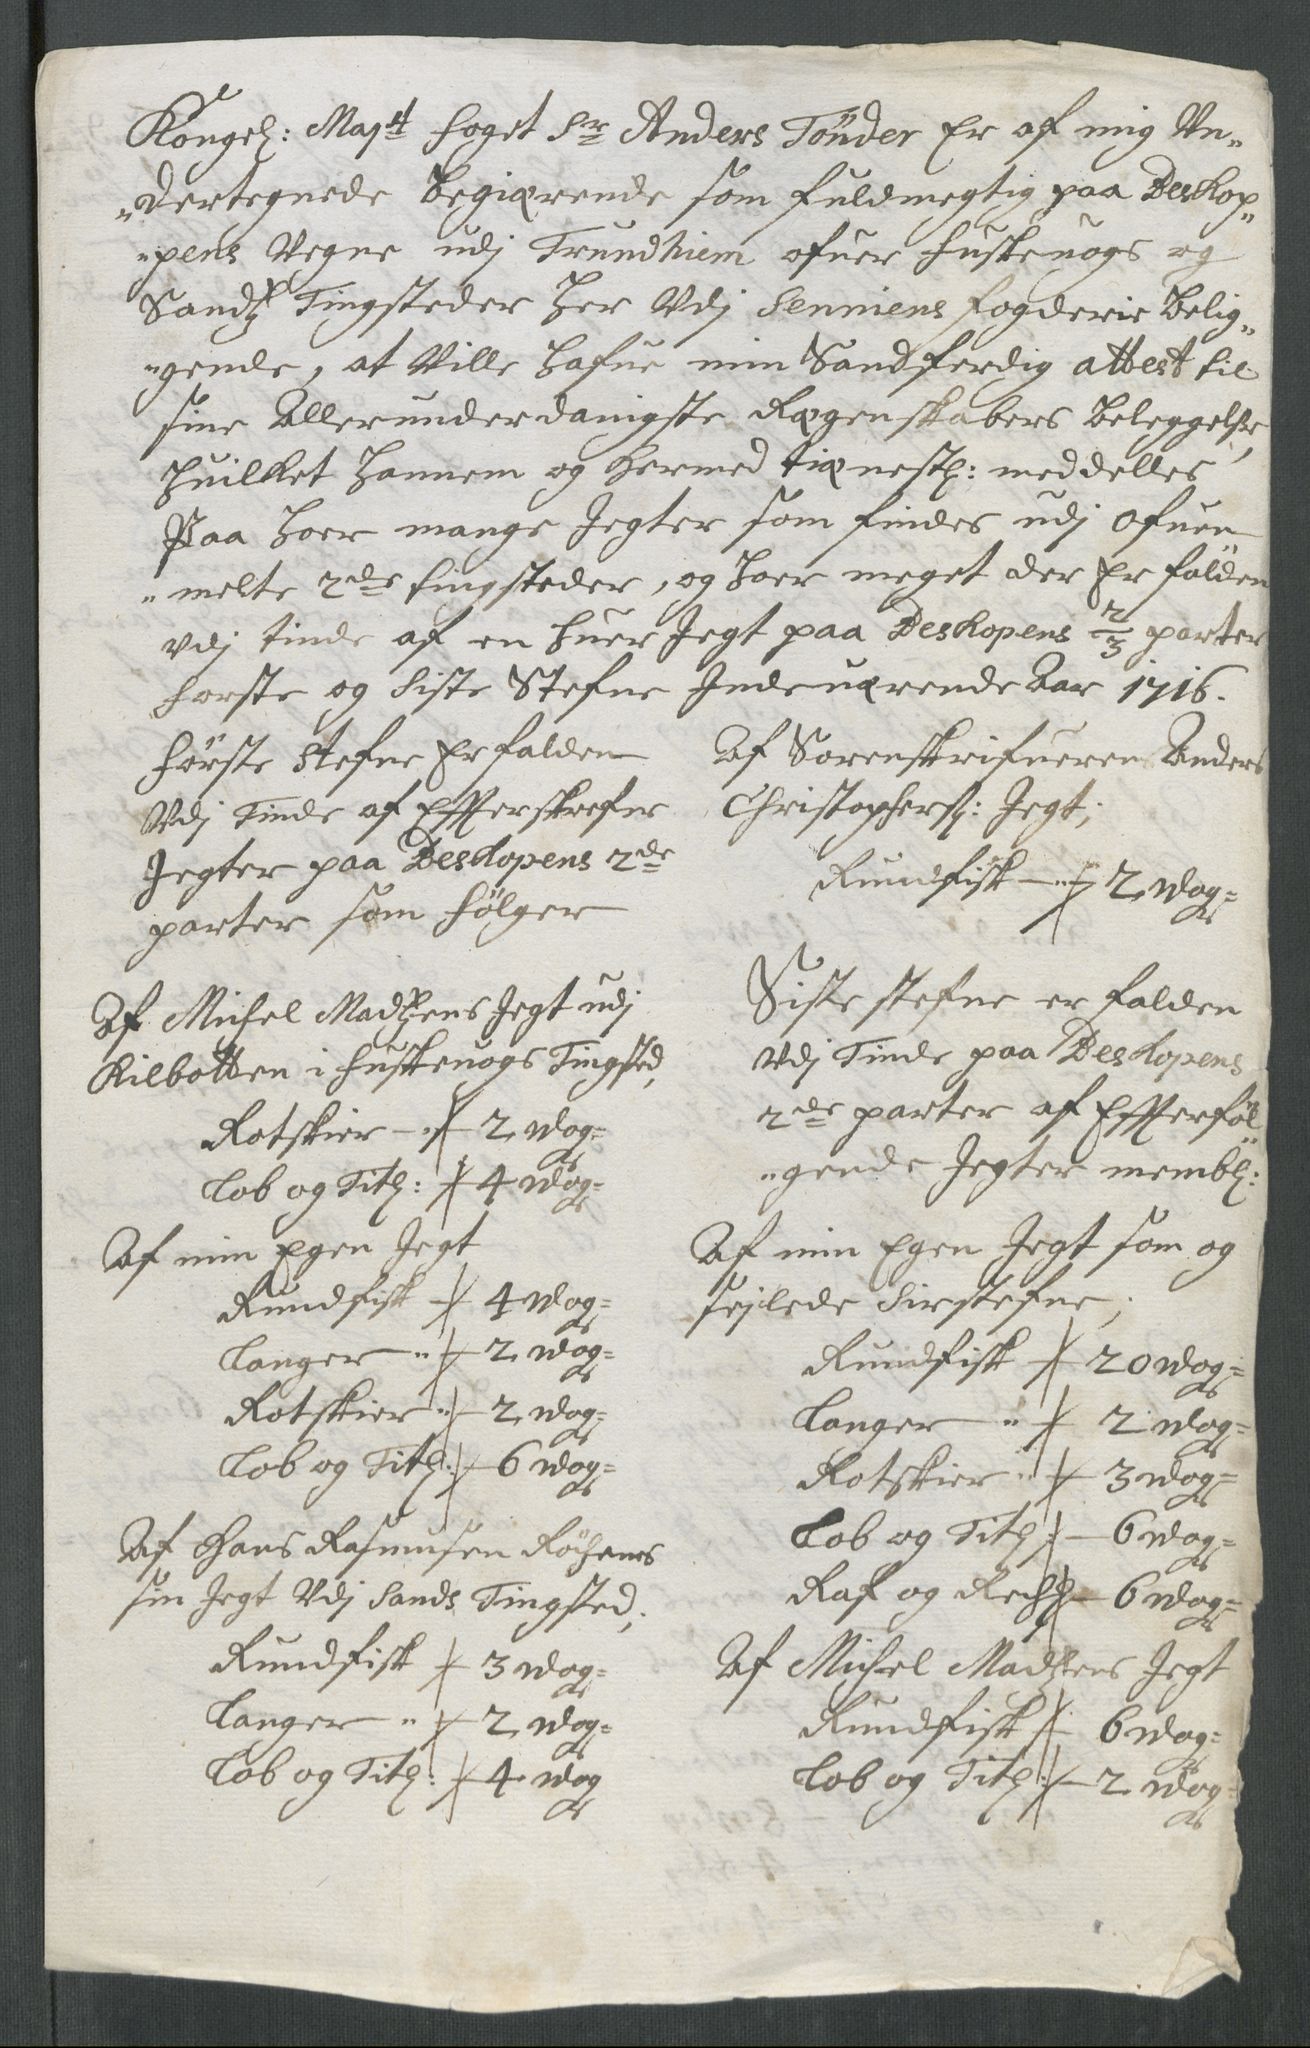 Kongel: Maj:tt foget Sr Anders Tönder Er af mig Un„
„dertegnede begiærende som fuldmegtig paa Beskop„
„pens Vegne udj Trundhiem ofuer huskeuogs og
Sandtz Tingsteder her Vdj Senniens fogderie belig„
„gende, at Ville hafue min Sandferdig attest til
sine Allerunderdanigste Regenskabers beleggelse,
huilket hannem og hermed tiænestl: meddelles
Paa hoer mange Jegter som findes udj ofuen
„melte 2de tingsteder, og hoer meget der Er falden
vdj tinde af en huer Jegt paa Beskopens 2/3 parter
forste og siste Stefne Indeuærende Aar 1716.
förste Stefne Er falden
Vdj Tinde af Efterskrefne
Jegter paa Beskopens 2de
parter som fölger
Af Michel Madtzens Jegt udj
Kilbotten i huskeuogs Tingsted,
Rotskier — 2 wog=
Lob og Titl: — 4 wog=
Af min Egen Jegt
Rundfisk — 4 wog=
Langer „ — 2 wog=
Rotskier „ — 2 wog=
Lob og Titl: — 6 wog=
Af Hans Rasmusen Röchenes
sin Jegt Vdj Sands Tingsted,
Rundfisk — 3 wog=
Langer „ — 2 wog=
Lob og Titl: — 4 wog
Af Sorenskrifueren Anders
Christophers: Jegt;
Rundfisk — 2 wog=
Siste stefne er falden
Vdj Tinde paa Beskopens
2de parter af Efterföl
„gende Jegter nembl:
Af min Egen Jegt som og
sejlede sirstefne;
Rundfisk — 20 wog=
Langer — „ — 2 wog=
Rotskier „ — 3 wog=
Lob og Titl: — 6 wog=
Raf og Rech — 6 wog=
Af Michel Madtzens Jegt
Rundfisk — 6 wog=
Lob og Titl: — 2 wog=